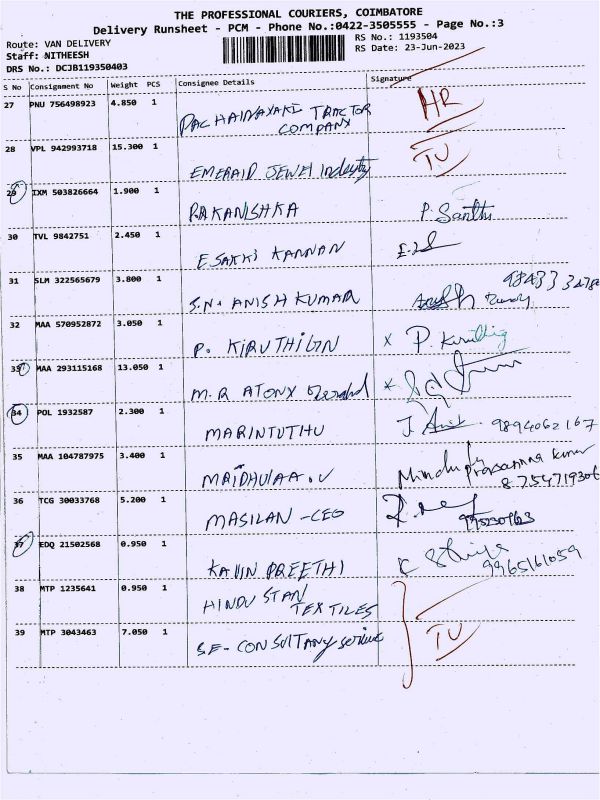 THE PROFESSIONAL COURIERS, COIMBATORE
Delivery Runsheet - PCM - Phone No.:0422-3505555 - Page No.:3
Route: VAN DELIVERY RS No.: 1193504
Staff: NITHEESH RS Date: 23-Jun-2023
DRS No.: DCJB119350403
S No Consignment No Weight PCS Consignee Details Signature
27 PNU 756498923 4.850 1 PACHAINAYAKI TRACTOR HR
COMPANY
28 VPL 942993718 15.300 1 TU
EMERALD JEWEL Industry
29 IXM 503826664 1.900 1
R.KANISHKA P. Santhi
30 TVL 9842751 2.450 1
ESAKKI KANNAN
31 SLM 322565679 3.800 1
S.N. ANISH KUMAR
32 MAA 570952872 3.050 1
P. KIRUTHIGN x P.
33 MAA 293115168 13.050 1
M.R ATONX
34 POL 1932587 2.300 1
MARINTUTHU J. 9894062167
35 MAA 104787975 3.400 1
MRIDHULAA.V
8754719306
36 TCG 30033768 5.200 1
MASILAN -CEO
37 EDQ 21502568 0.950 1
KAVIN PREETHI K 9965161059
38 MTP 1235641 0.950 1 HINDUSTAN
TEXTILES
39 MTP 3043463 7.050 1 TU
SE-CONSULTANY service